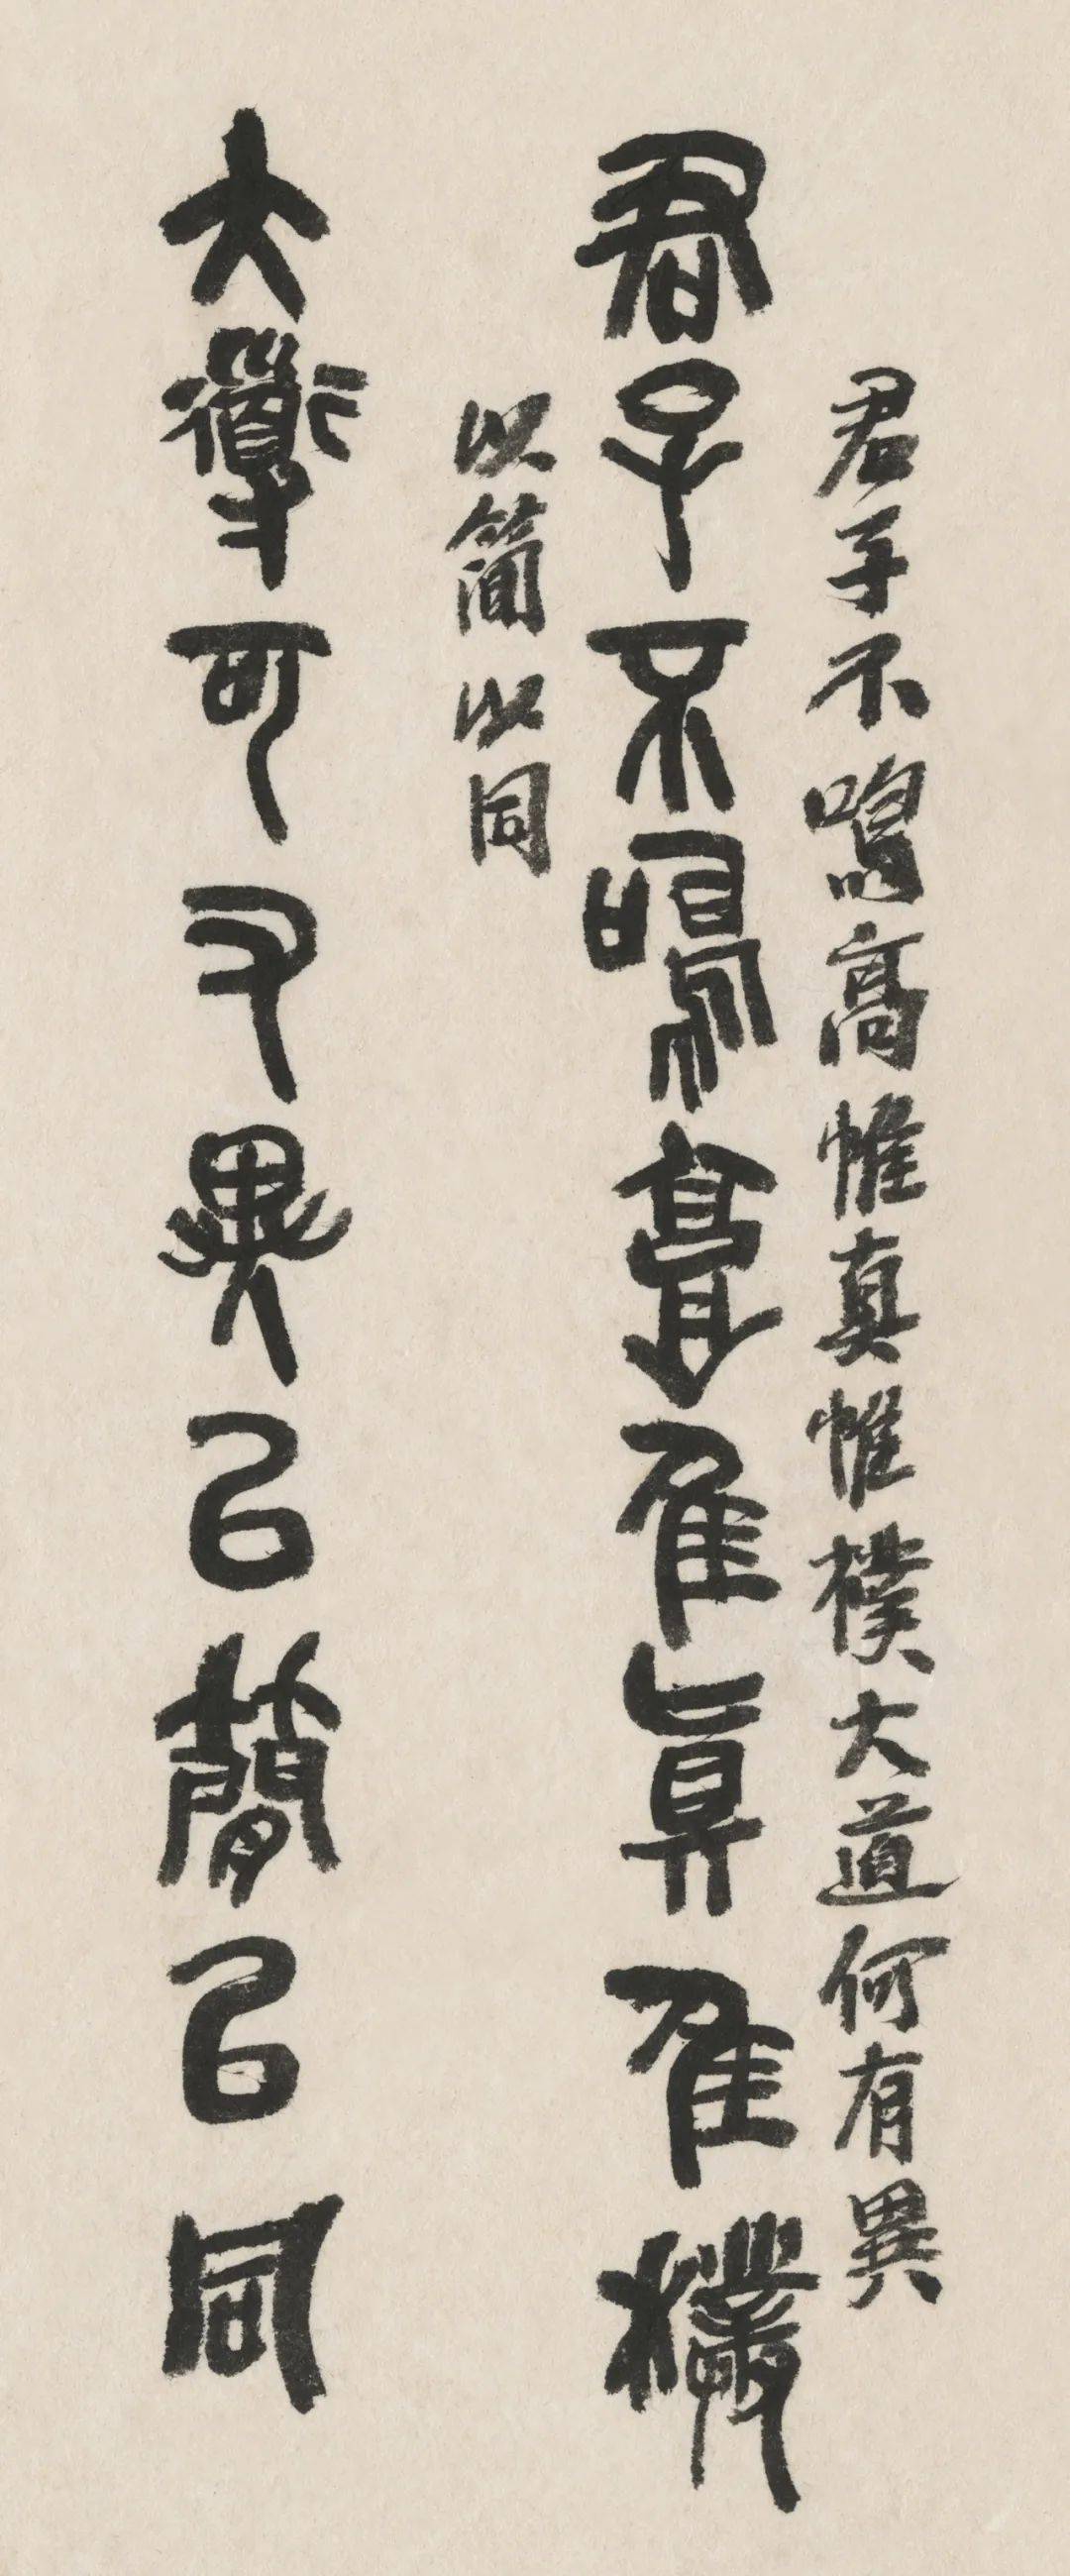 君子不鳴高惟真惟樸大道何有異
君子不鳴高隹眞隹樸
以簡以同
大道可又異㠯簡㠯同